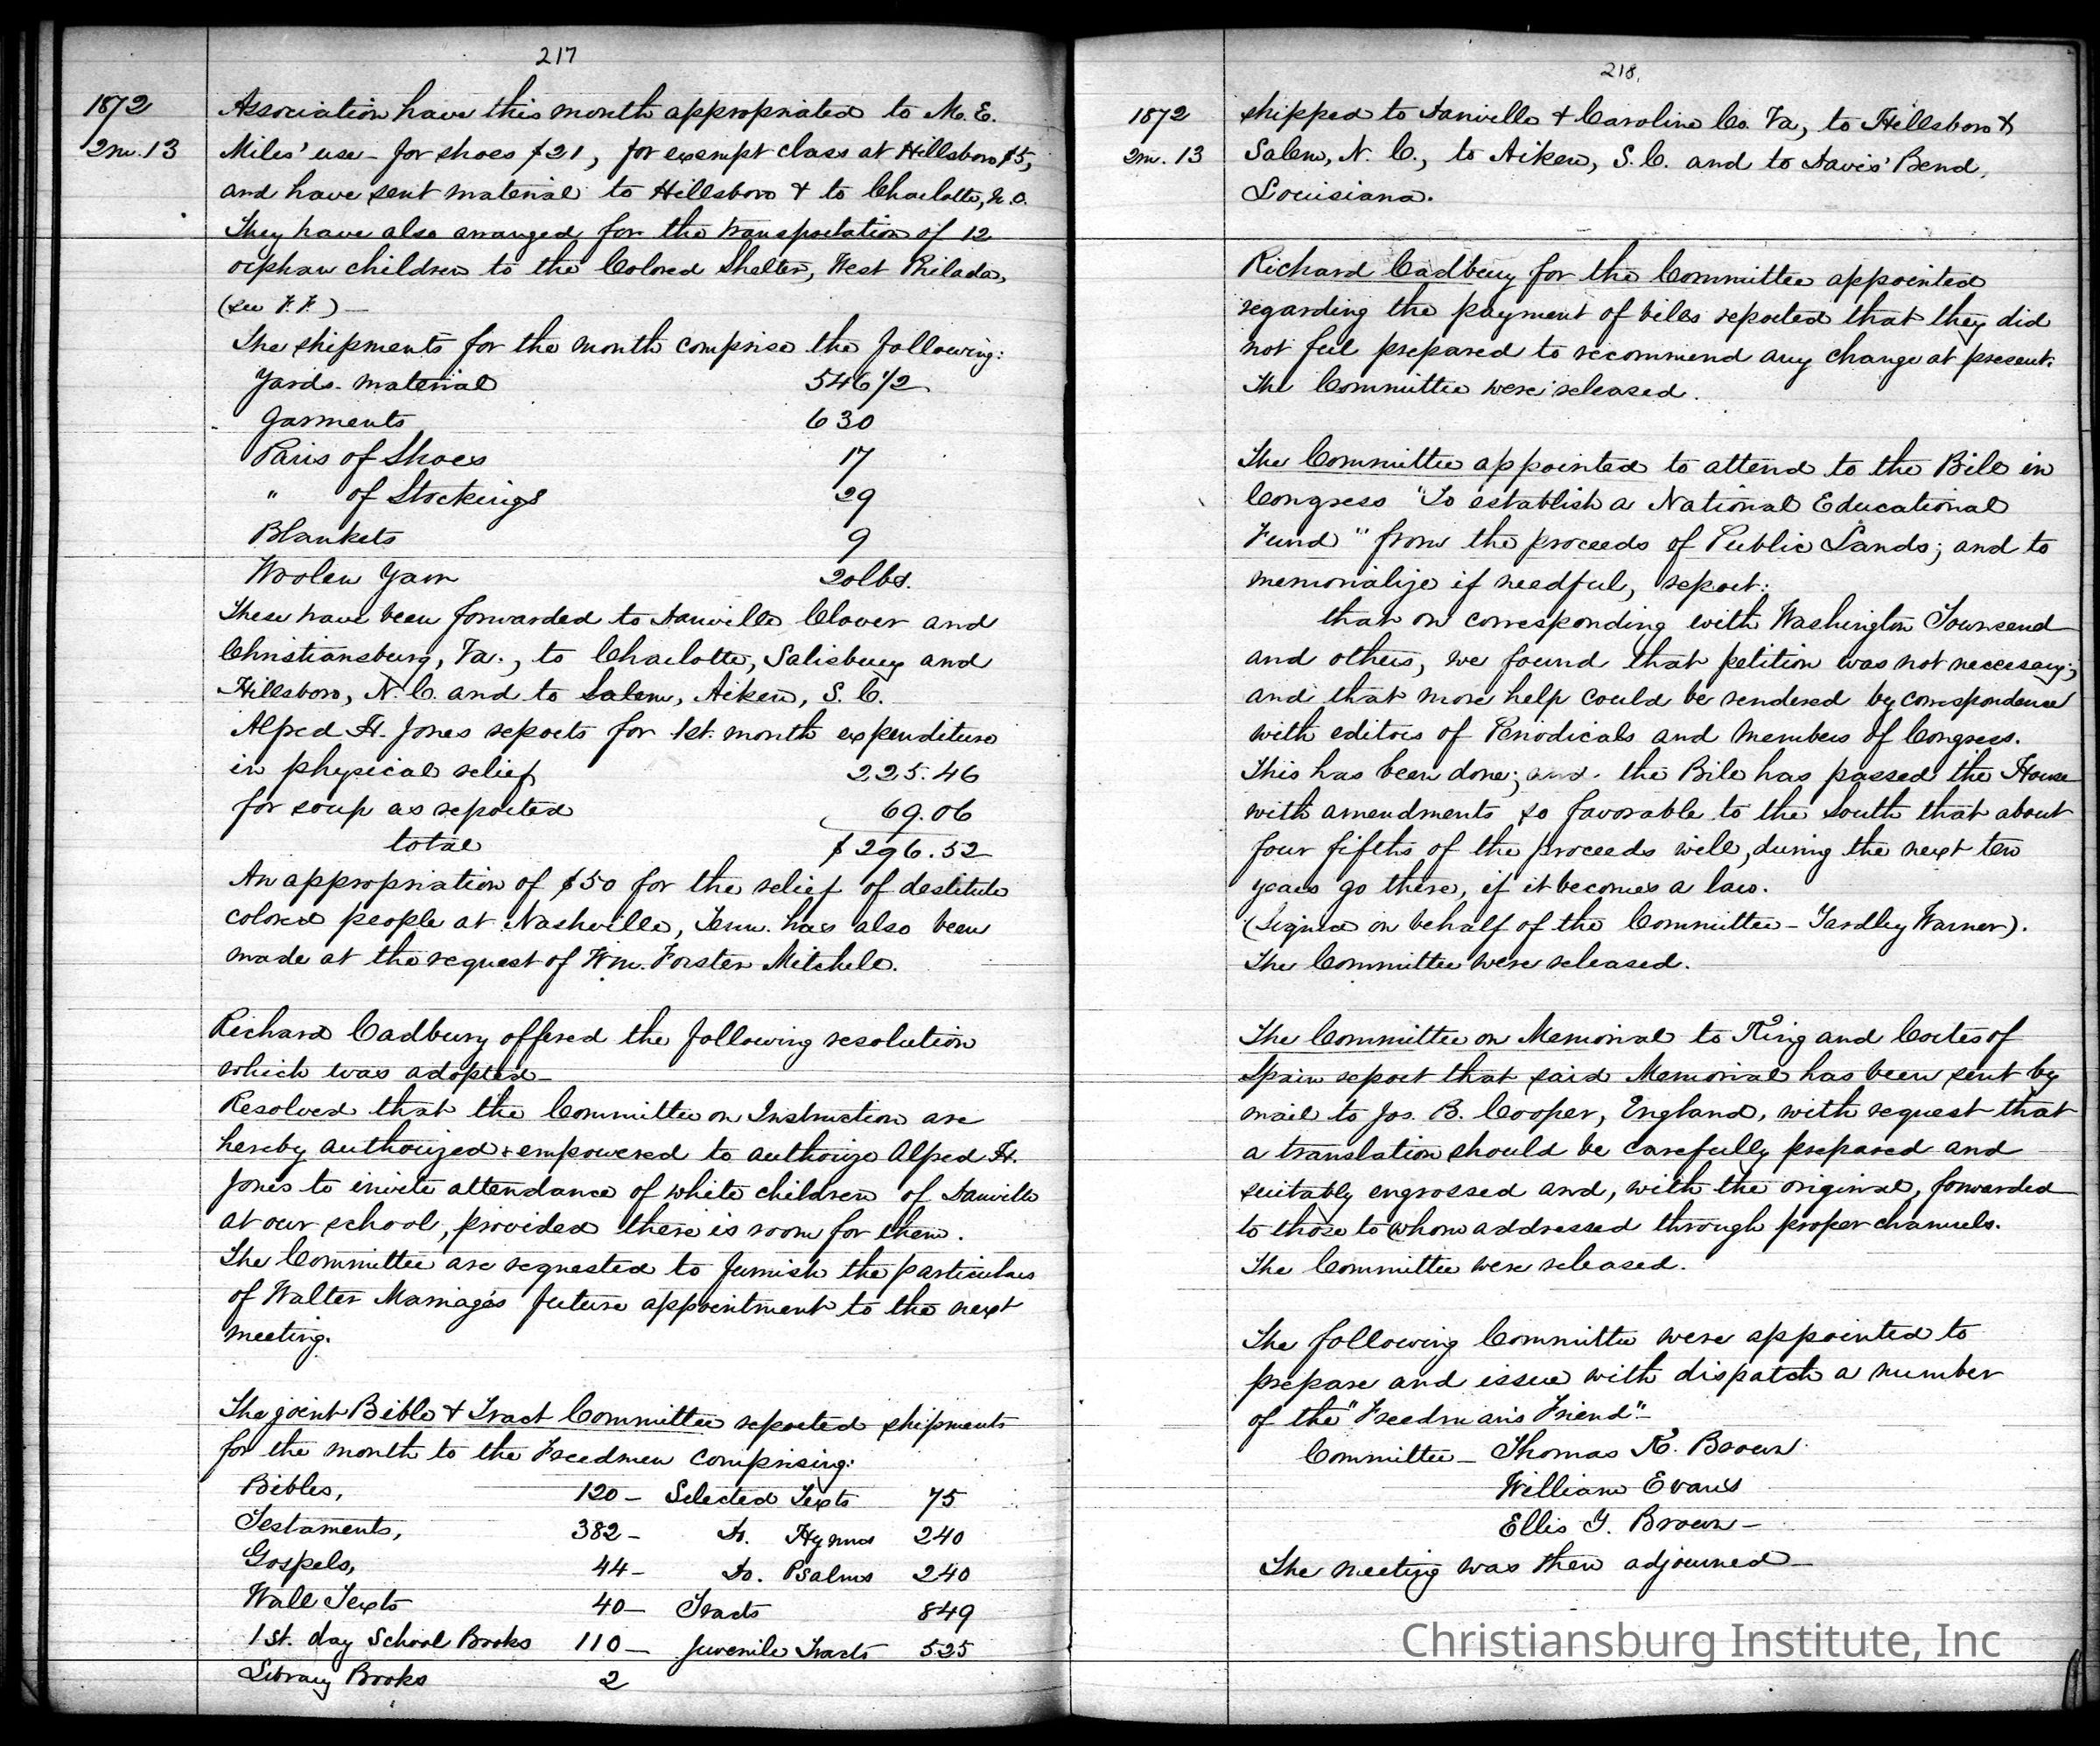 217
1872
2m. 13
Association have this month appropriated to M. E.
Miles' use - for shoes $21, for exempt class at Hillsboro $5,
and have sent material to Hillsboro & to Charlotte, N.C.
They have also arranged for the transportation of 12
orphan children to the Colored Shelter, West Philada,
(see F. F.) —
The shipments for the month comprise the following:
Yards - material 546 1/2
Garments 630
Pairs of Shoes 17
" of Stockings 29
Blankets 9
Woolen Yarn 20 lbs.
These have been forwarded to Danville Clover and
Christiansburg, Va., to Charlotte, Salisbury and
Hillsboro, N. C. and to Salem, Aiken, S. C.
Alfred H. Jones reports for 1st. month expenditure
in physical relief 225.46
for soup as reported 69.06
total $296.52
An appropriation of $50 for the relief of destitute
colored people at Nashville, Tenn. has also been
made at the request of Wm. Forster Mitchell.
Richard Cadbury offered the following resolution
which was adopted -
Resolved that the Committee on Instruction are
hereby authorized & empowered to authorize Alfred H.
Jones to invite attendance of white children of Danville
at our school, provided there is room for them.
The Committee are requested to furnish the particulars
of Walter Marriage's future appointment to the next
meeting.
The joint Bible & Tract Committee reported shipments
for the month to the Freedmen comprising:
Bibles, 120 - Selected Texts 75
Testaments, 382 - Do. Hymns 240
Gospels, 44 - Do. Psalms 240
Wall Texts 40 - Tracts 849
1st. day School Books 110 - Juvenile Tracts 525
Library Books 2
218.
1872
2m. 13
shipped to Danville & Caroline Co. Va, to Hillsboro &
Salem, N. C., to Aiken, S. C. and to Davis' Bend,
Louisiana.
Richard Cadbury for the Committee appointed
regarding the payment of bills reported that they did
not feel prepared to recommend any change at present.
The Committee were released.
The Committee appointed to attend to the Bill in
Congress "To establish a National Educational
Fund" from the proceeds of Public Lands; and to
memorialize if needful, report:
that on corresponding with Washington Townsend
and others, we found that petition was not necessary;
and that more help could be rendered by correspondence
with editors of Periodicals and Members of Congress.
This has been done; and the Bill has passed the House
with amendments so favorable to the South that about
four fifths of the proceeds will, during the next ten
years go there, if it becomes a law.
(Signed on behalf of the Committee - Yardley Warner).
The Committee were released.
The Committee on Memorial to King and Cortes of
Spain report that said Memorial has been sent by
mail to Jos. B. Cooper, England, with request that
a translation should be carefully prepared and
suitably engrossed and, with the original, forwarded
to those to whom addressed through proper channels.
The Committee were released.
The following Committee were appointed to
prepare and issue with dispatch a number
of the "Freedman's Friend" -
Committee - Thomas K. Brown
William Evans
Ellis Y. Brown -
The meeting was then adjourned -
Christiansburg Institute, Inc